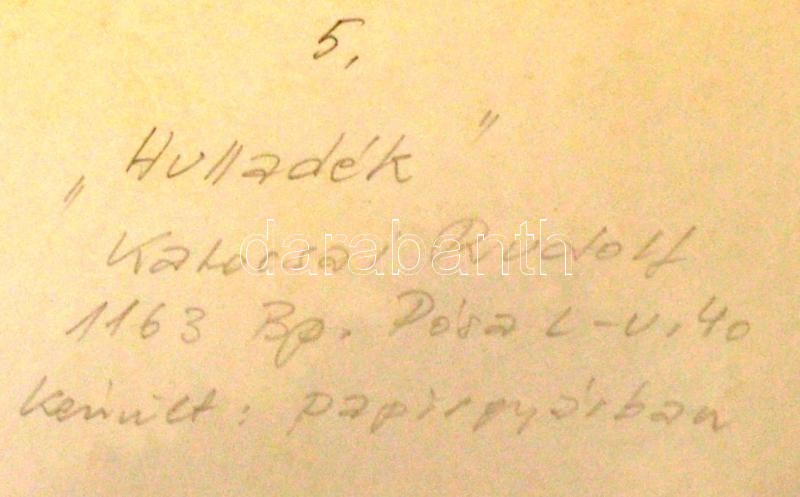 5,
„Hulladék"
Kalocsai Rudolf
1163 Bp. Dósa L-u. 40
Készült: papírgyárban
darabanth